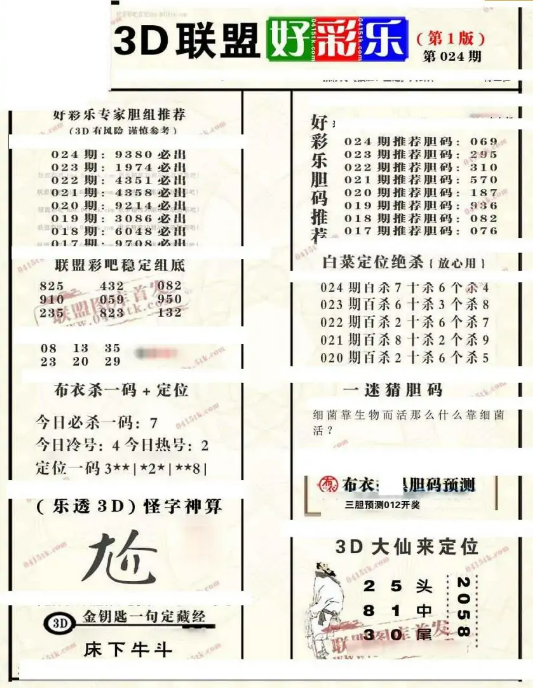 3D联盟好彩乐
(第1版)
第024期
好彩乐专家胆组推荐
(3D有风险 谨慎参考)
024期: 9380必出
023期: 1974必出
022期: 4351必出
021期: 4358必出
020期: 9214必出
019期: 3086必出
018期: 6048必出
017期: 9708必出
联盟彩吧稳定组底
825 432 082
910 059 950
235 823 132
08 13 35
23 20 29
布衣杀一码+定位
今日必杀一码: 7
今日冷号: 4 今日热号: 2
定位一码3**|*2*|**8|
(乐透3D)怪字神算
尬
3D 金钥匙一句定藏经
床下牛斗
好彩乐胆码推荐
024期推荐胆码: 069
023期推荐胆码: 295
022期推荐胆码: 310
021期推荐胆码: 570
020期推荐胆码: 187
019期推荐胆码: 936
018期推荐胆码: 082
017期推荐胆码: 076
白菜定位绝杀(放心用)
024期百杀7十杀6个杀4
023期百杀6十杀3个杀8
022期百杀2十杀6个杀7
021期百杀8十杀2个杀9
020期百杀2十杀6个杀5
一迷猜胆码
细菌靠生物而活那么什么靠细菌
活?
布衣 胆码预测
三胆预测012开奖
3D大仙来定位
2 5 头
8 1 中
3 0 尾
2058